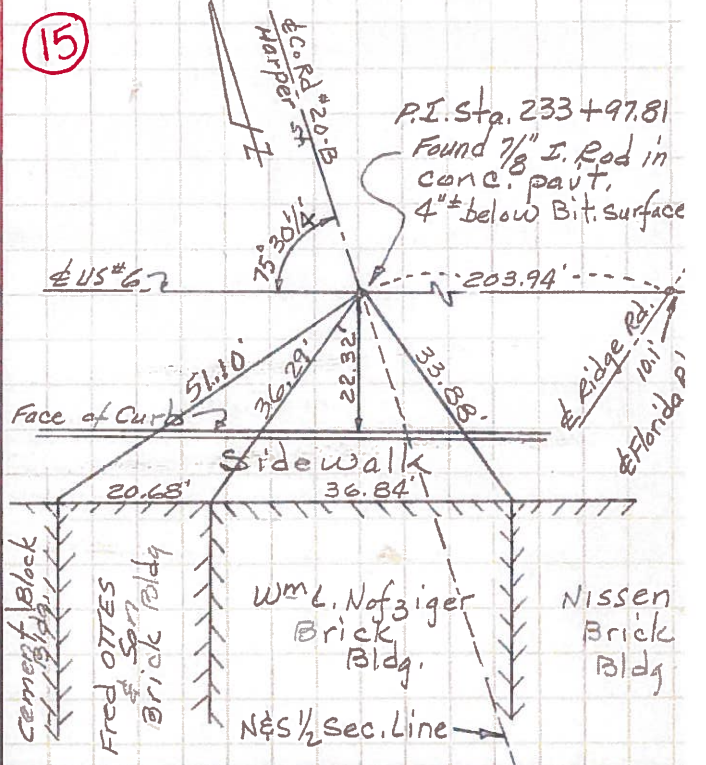 15
℄ Co. Rd #20-B
Harper St
N
P.I. Sta. 233+97.81
Found 7/8" I. Rod in
conc. pavt.
4"± below Bit. Surface
75° 30 1/4'
℄ US #6
203.94'
℄ Ridge Rd.
10.1'
℄ Florida
51.10'
36.29'
22.32'
33.88'
Face of Curb
Sidewalk
20.68'
36.84'
Cement Block
Bldg.
Fred OTTES
& Son
Brick Bldg
Wm L. Nofziger
Brick
Bldg.
Nissen
Brick
Bldg
N&S 1/2 Sec. Line